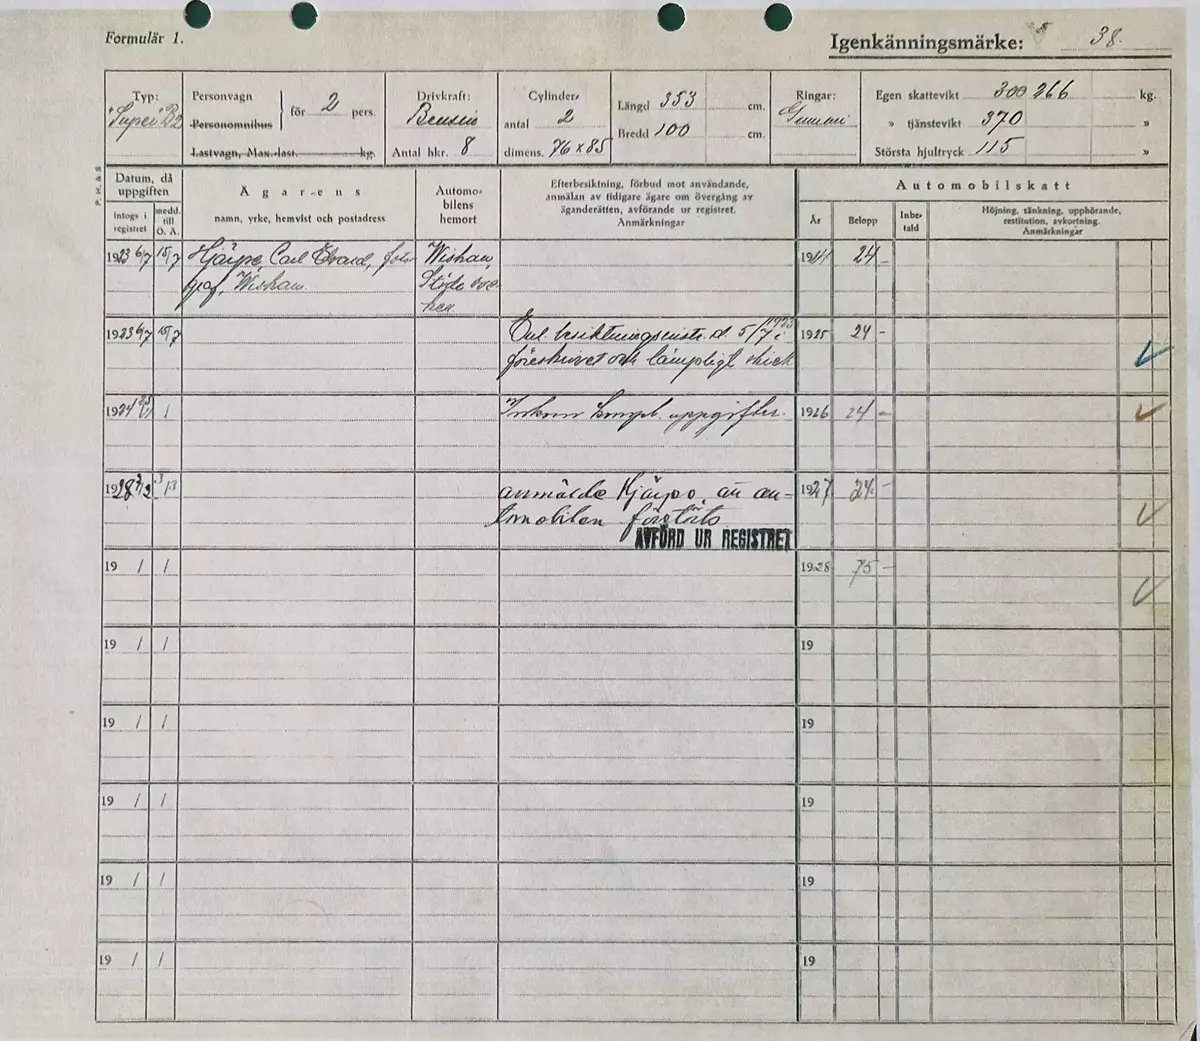 Formulär 1.
Igenkänningsmärke: 38.
Typ: Personvagn för 2 pers. Drivkraft: Cylinder Längd 353 cm. Ringar: Egen skattevikt 300 266 kg.
Personomnibus Bensin antal 2 Bredd 100 cm. Gummi » tjänstevikt 370 »
Lastvagn, Max.-last kg. Antal hkr. 8 dimens. 76 x 85 Största hjultryck 115 »
P. H. & S
Datum, då uppgiften Ägarens Automobilens hemort Efterbesiktning, förbud mot användande, Automobilskatt
anmälan av tidigare ägare om övergång av
äganderätten, avförande ur registret.
Anmärkningar
intogs i registret medd. till O. Ä. namn, yrke, hemvist och postadress År Belopp Inbetald Höjning, sänkning, upphörande,
restitution, avkortning.
Anmärkningar
1923 6/7 15/7 Carl 19 24 –
1923 6/7 15/7 Enl. d. 5/7 1923 i 1925 24 –
och lämpligt skick
1924 / kompl. uppgifter. 1926 24 –
1928 anmälde att au- 1927 24 –
tomobilen förstörts
AVFÖRD UR REGISTRET
19 / / 1928 75 –
19 / / 19
19 / / 19
19 / / 19
19 / / 19
19 / / 19